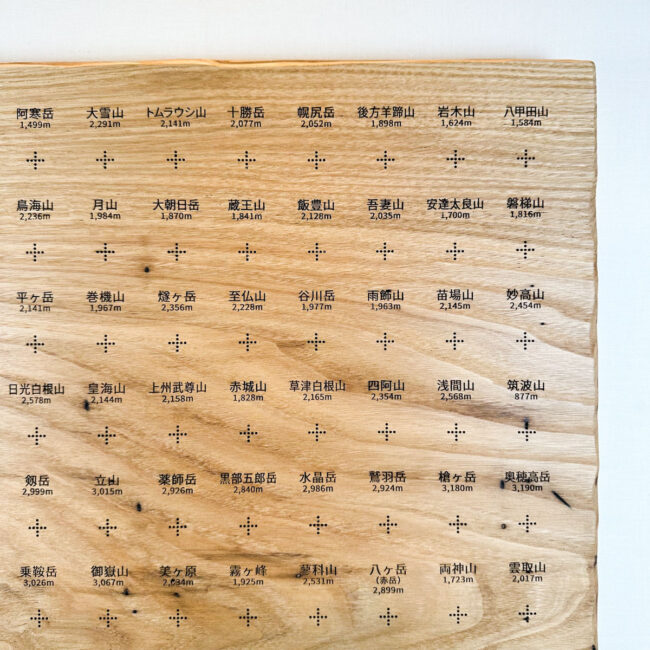 阿寒岳 大雪山 トムラウシ山 十勝岳 幌尻岳 後方羊蹄山 岩木山 八甲田山
1,499m 2,291m 2,141m 2,077m 2,052m 1,898m 1,624m 1,584m
鳥海山 月山 大朝日岳 蔵王山 飯豊山 吾妻山 安達太良山 磐梯山
2,236m 1,984m 1,870m 1,841m 2,128m 2,035m 1,700m 1,816m
平ヶ岳 巻機山 燧ヶ岳 至仏山 谷川岳 雨飾山 苗場山 妙高山
2,141m 1,967m 2,356m 2,228m 1,977m 1,963m 2,145m 2,454m
日光白根山 皇海山 上州武尊山 赤城山 草津白根山 四阿山 浅間山 筑波山
2,578m 2,144m 2,158m 1,828m 2,165m 2,354m 2,568m 877m
剱岳 立山 薬師岳 黒部五郎岳 水晶岳 鷲羽岳 槍ヶ岳 奥穂高岳
2,999m 3,015m 2,926m 2,840m 2,986m 2,924m 3,180m 3,190m
乗鞍岳 御嶽山 美ヶ原 霧ヶ峰 蓼科山 八ヶ岳 両神山 雲取山
3,026m 3,067m 2,034m 1,925m 2,531m (赤岳) 1,723m 2,017m
2,899m